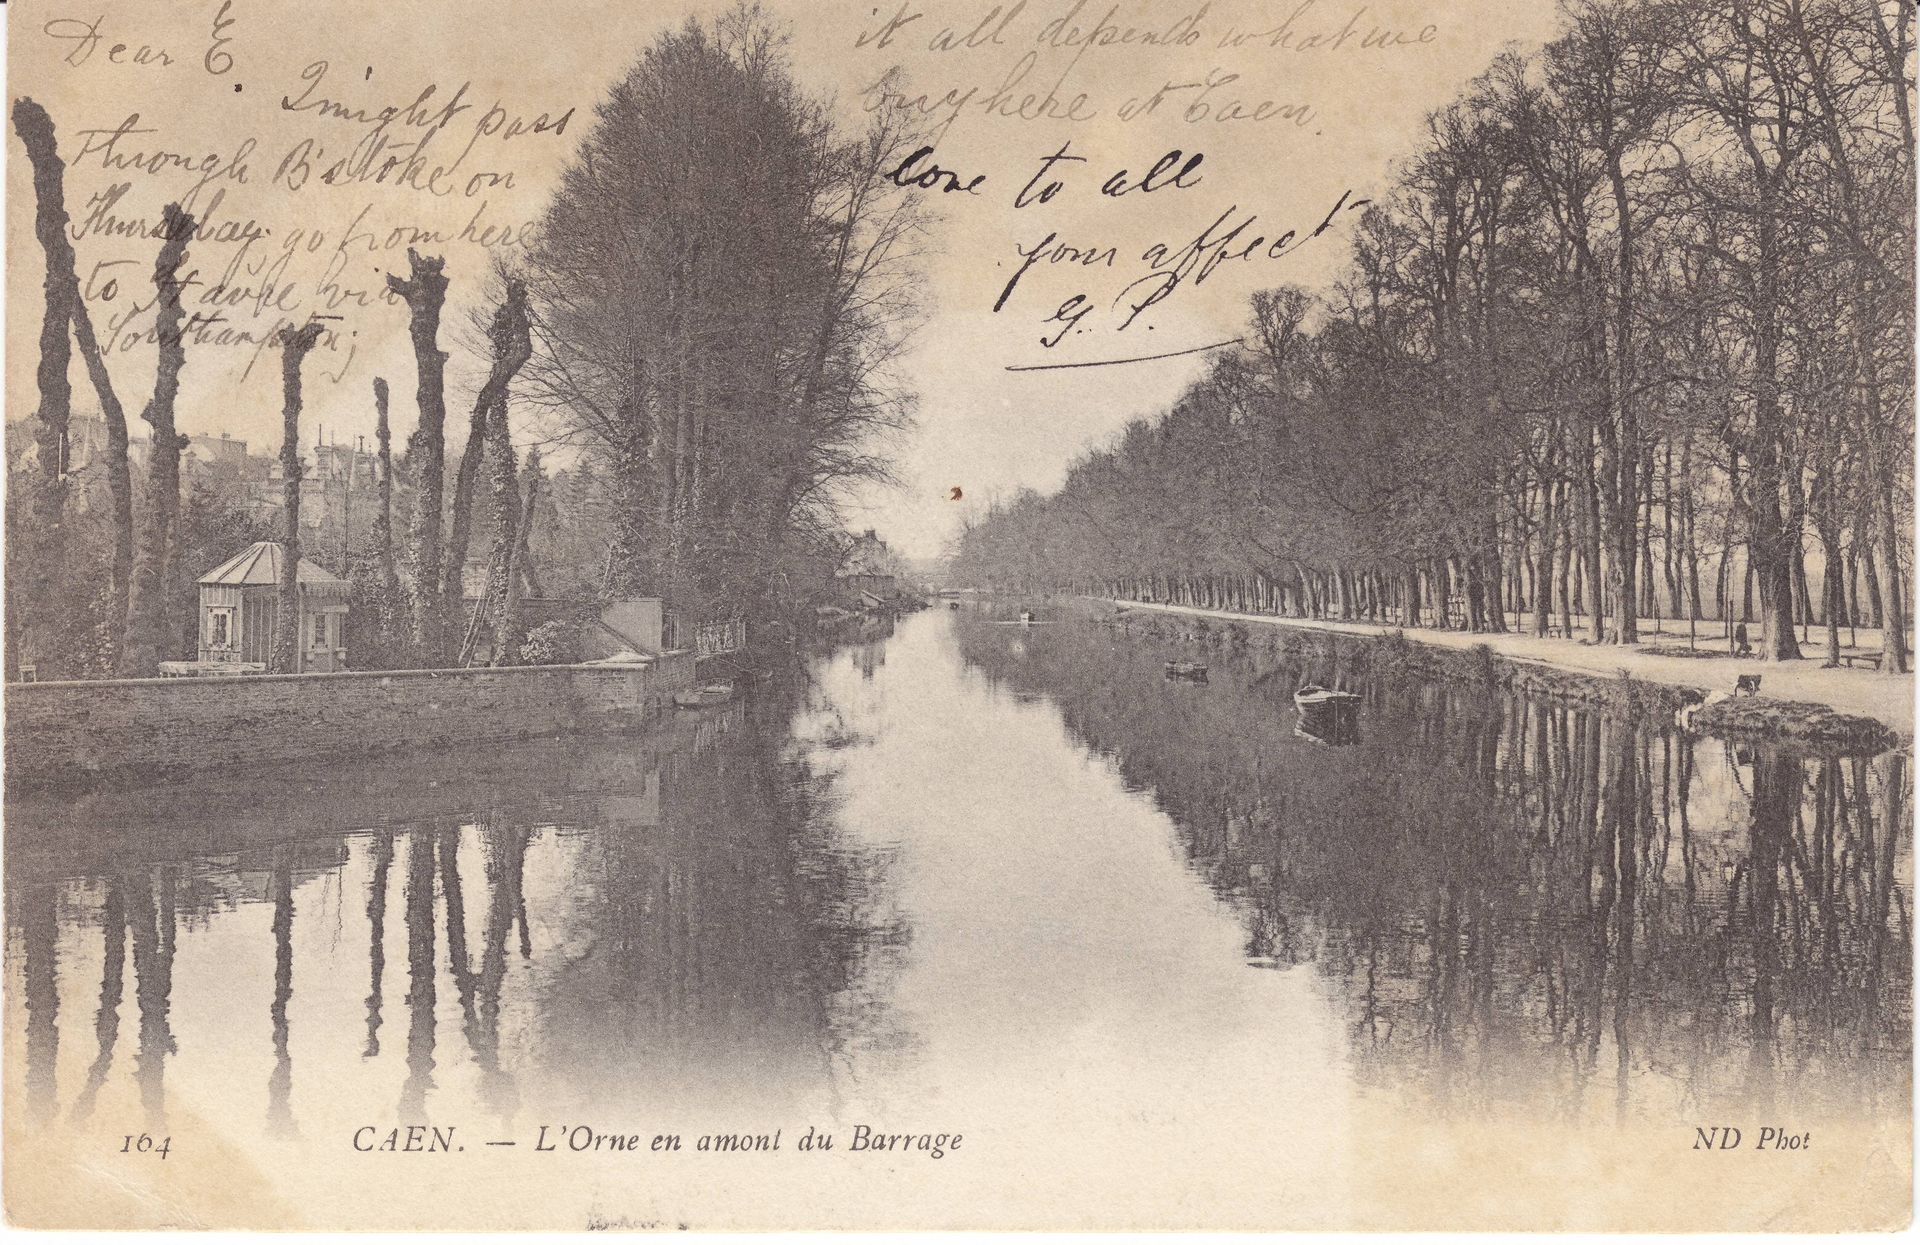 Dear E.
I might pass
through B'stoke on
Thursday, go from here
to Havre via
Southampton;
it all depends what we
buy here at Caen.
love to all
your affect
G. P.
164
CAEN. — L'Orne en amont du Barrage
ND Phot